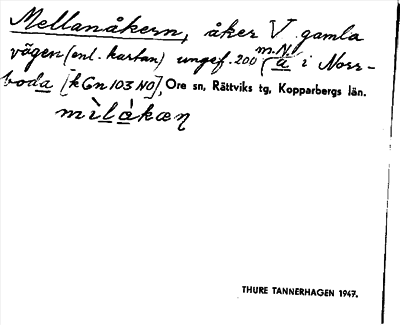 Mellanåkern, åker V gamla
vägen (enl. kartan) ungef. 200 m.N. (a i Norr-
boda [kGn103NO], Ore sn, Rättviks tg, Kopparbergs län.
mìlàkæn
THURE TANNERHAGEN 1947.